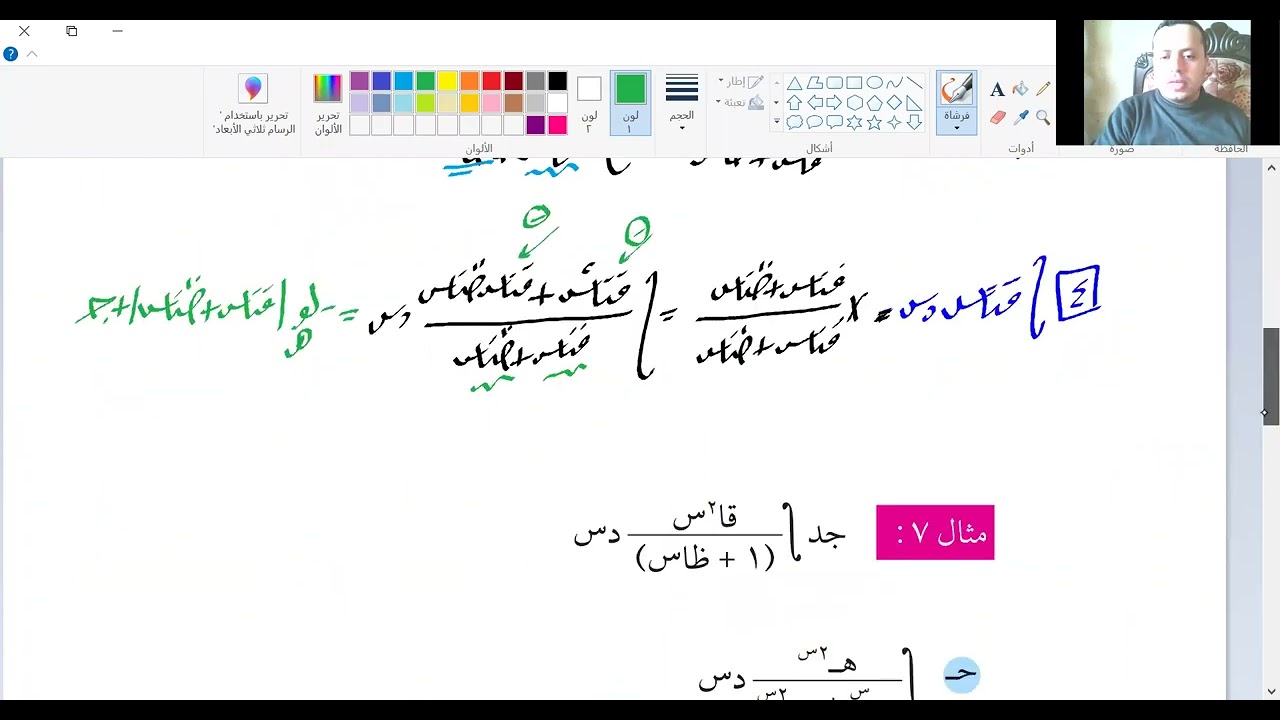 تحرير باستخدام '
الرسام ثلاثي الأبعاد'
تحرير
الألوان
لون
٢
لون
١
الحجم
إطار
تعبئة
فرشاة
الألوان
أشكال
أدوات
صورة
الحافظة
٤ ∫ قتاس دس = × (قتاس + ظتاس) / (قتاس + ظتاس) = ∫ (قتا²س + قتاس ظتاس) / (قتاس + ظتاس) دس = -لو_هـ |قتاس + ظتاس| + جـ
مثال ٧ : جد ∫ قا²س / (١ + ظاس) دس
حـ ∫ هـ²س
دس